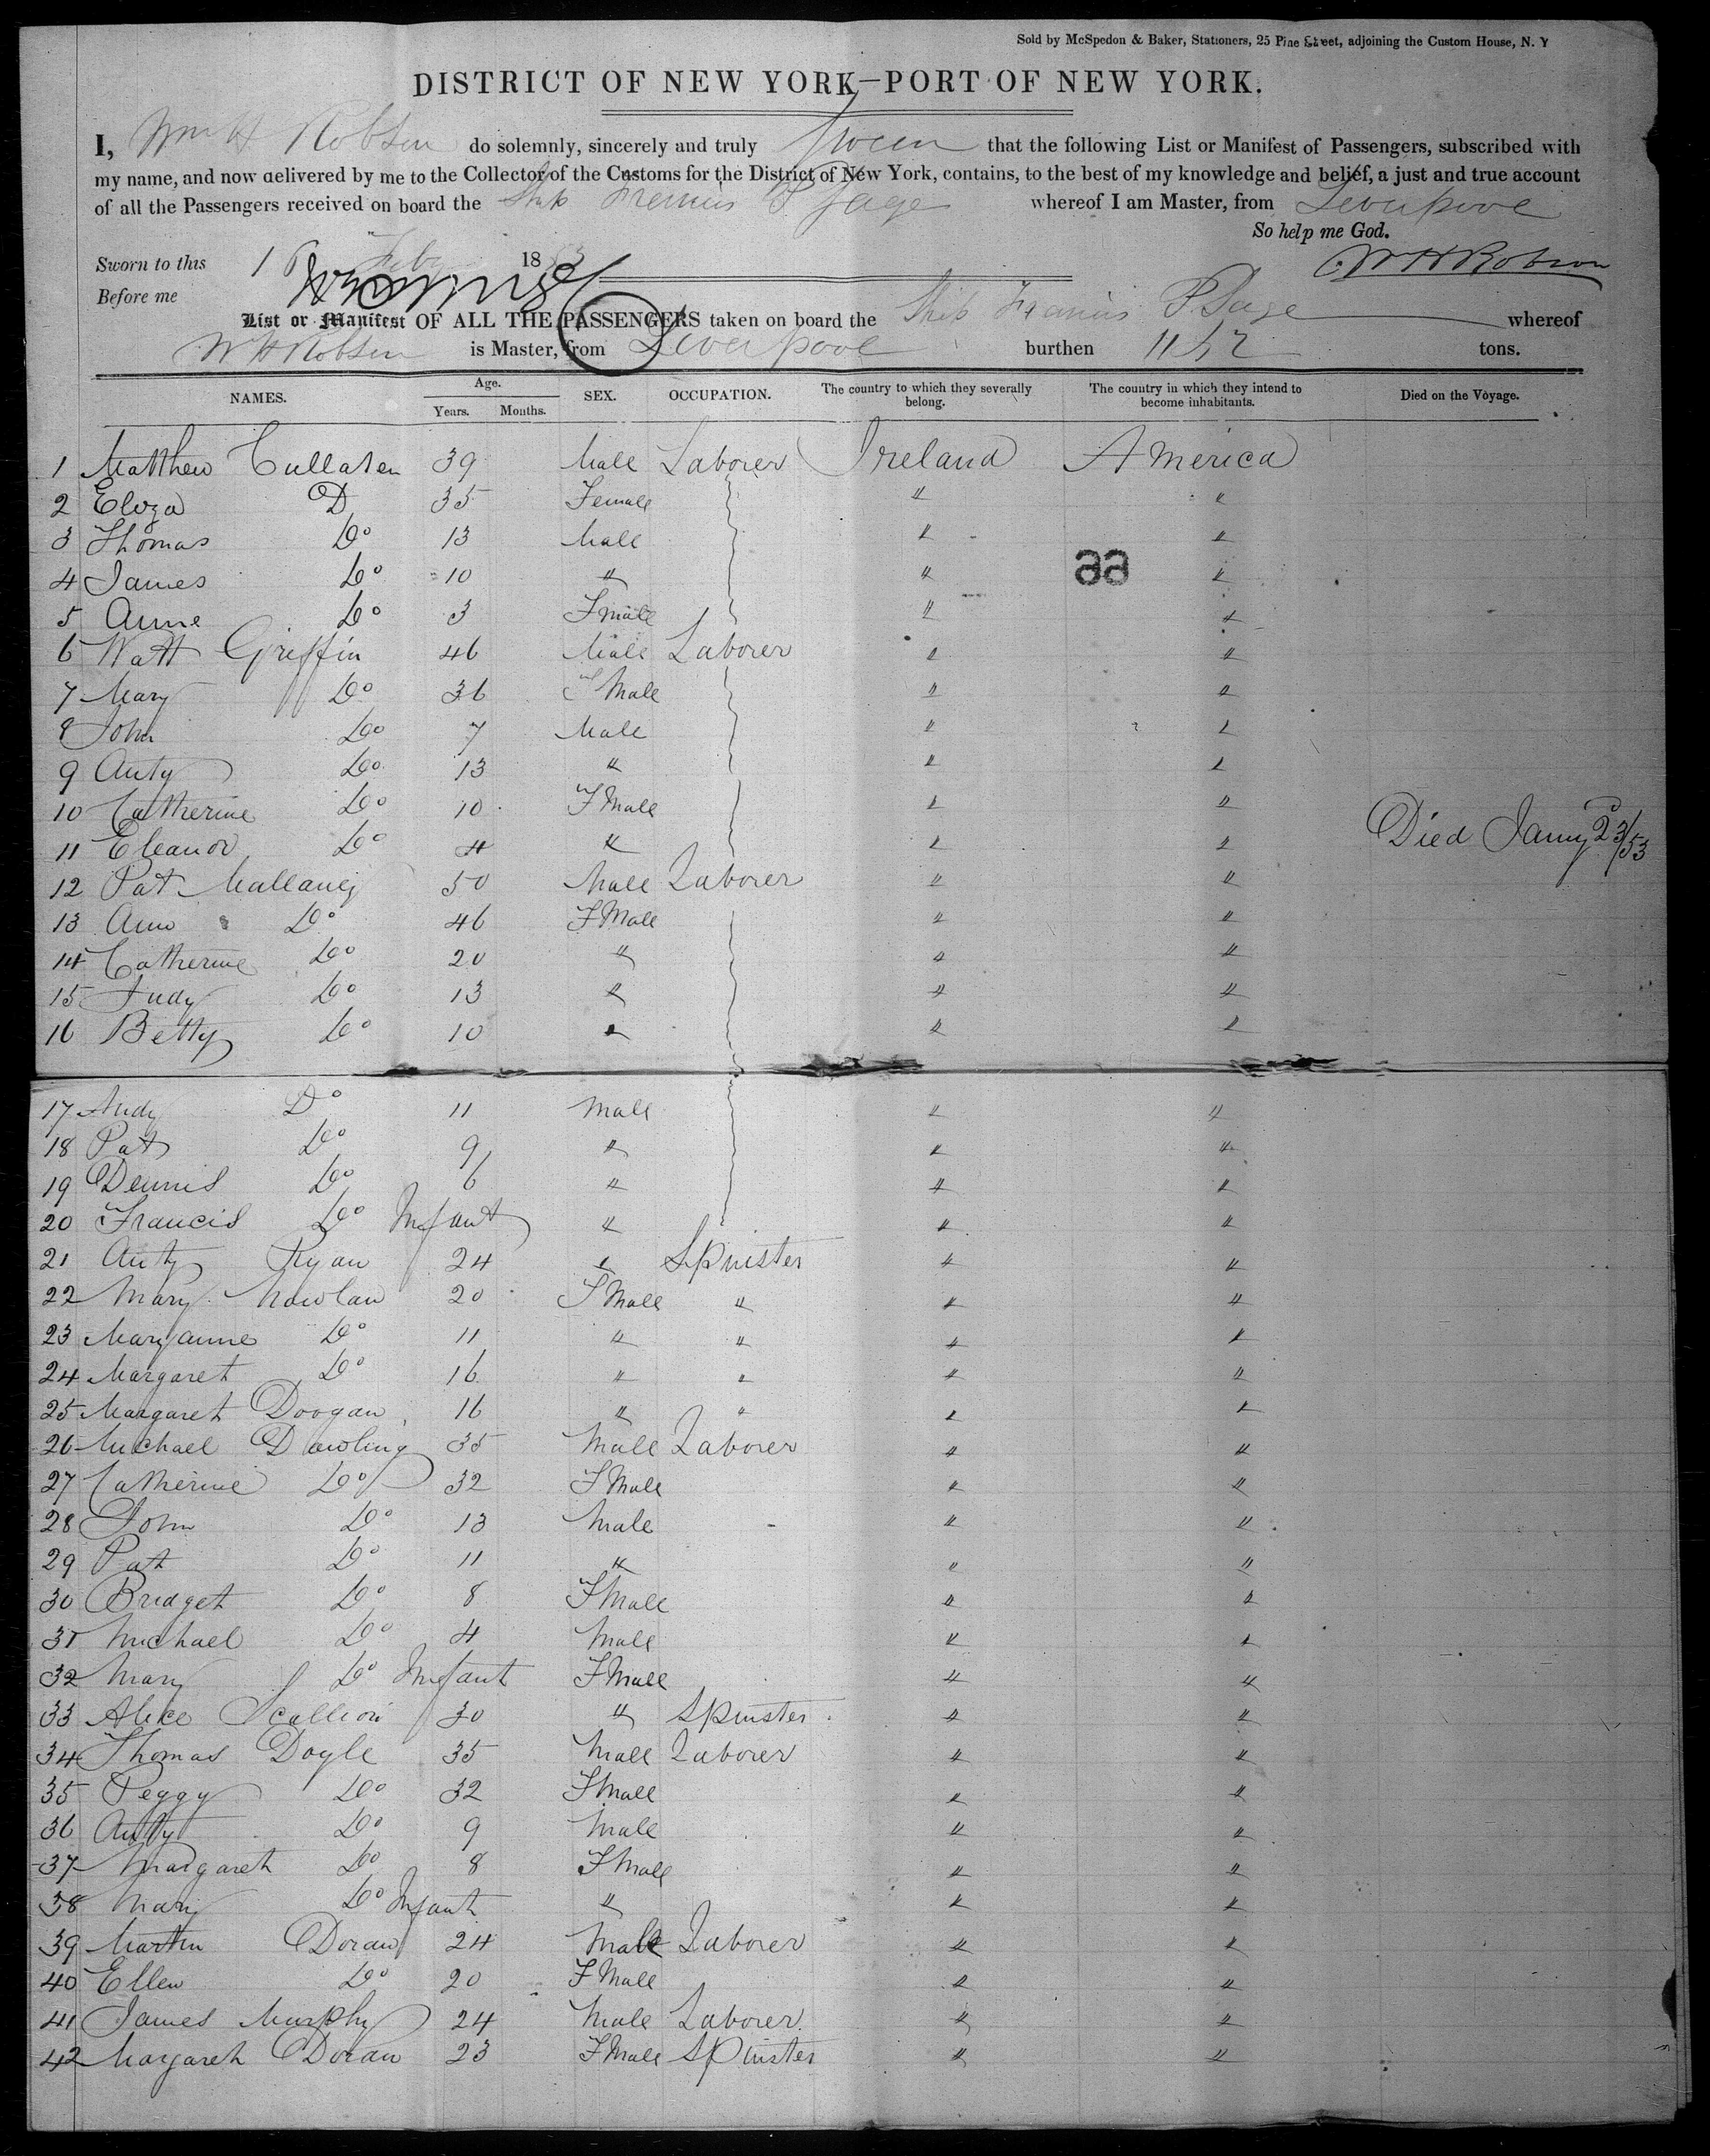 Sold by McSpedon & Baker, Stationers, 25 Pine Street, adjoining the Custom House, N. Y
DISTRICT OF NEW YORK—PORT OF NEW YORK.
I, Wm H Robson do solemnly, sincerely and truly swear that the following List or Manifest of Passengers, subscribed with
my name, and now delivered by me to the Collector of the Customs for the District of New York, contains, to the best of my knowledge and belief, a just and true account
of all the Passengers received on board the Ship Francis P Sage whereof I am Master, from Liverpool
So help me God.
Sworn to this 16 Feby 1853 W H Robson
Before me
List or Manifest OF ALL THE PASSENGERS taken on board the Ship Francis P. Sage whereof
W H Robson is Master, from Liverpool burthen 1157 tons.
NAMES. Age. Years. Months. SEX. OCCUPATION. The country to which they severally belong. The country in which they intend to become inhabitants. Died on the Voyage.
1 Matthew Cullaten 39 Male Laborer Ireland America
2 Eliza Do 35 Female " "
3 Thomas Do 13 Male " "
4 James Do 10 " " "
99
5 Anne Do 3 Fmale " "
6 Watt Griffin 46 Male Laborer " "
7 Mary Do 36 FMale " "
8 John Do 7 Male " "
9 Anty Do 13 " " "
10 Catherine Do 10 FMale " "
11 Eleanor Do 4 " " " Died Jany 23/53
12 Pat Mallaney 50 Male Laborer " "
13 Ann Do 46 FMale " "
14 Catherine Do 20 " " "
15 Judy Do 13 " " "
16 Betty Do 10 " " "
17 Andy Do 11 Male " "
18 Pat Do 9 " " "
19 Dennis Do 6 " " "
20 Francis Do Infant " " "
21 Anty Ryan 24 " Spinster " "
22 Mary Nowlan 20 FMale " " "
23 Maryanne Do 11 " " " "
24 Margaret Do 16 " " " "
25 Margaret Doogan 16 " " " "
26 Michael Dowling 35 Male Laborer " "
27 Catherine Do 32 FMale " "
28 John Do 13 Male " "
29 Pat Do 11 " " "
30 Bridget Do 8 FMale " "
31 Michael Do 4 Male " "
32 Mary Do Infant FMale " "
33 Alice Scallion 30 " Spinster " "
34 Thomas Doyle 35 Male Laborer " "
35 Peggy Do 32 FMale " "
36 Anty Do 9 Male " "
37 Margaret Do 8 FMale " "
38 Mary Do Infant " " "
39 Martin Doran 24 Male Laborer " "
40 Ellen Do 20 FMale " "
41 James Murphy 24 Male Laborer " "
42 Margaret Doran 23 FMale Spinster " "